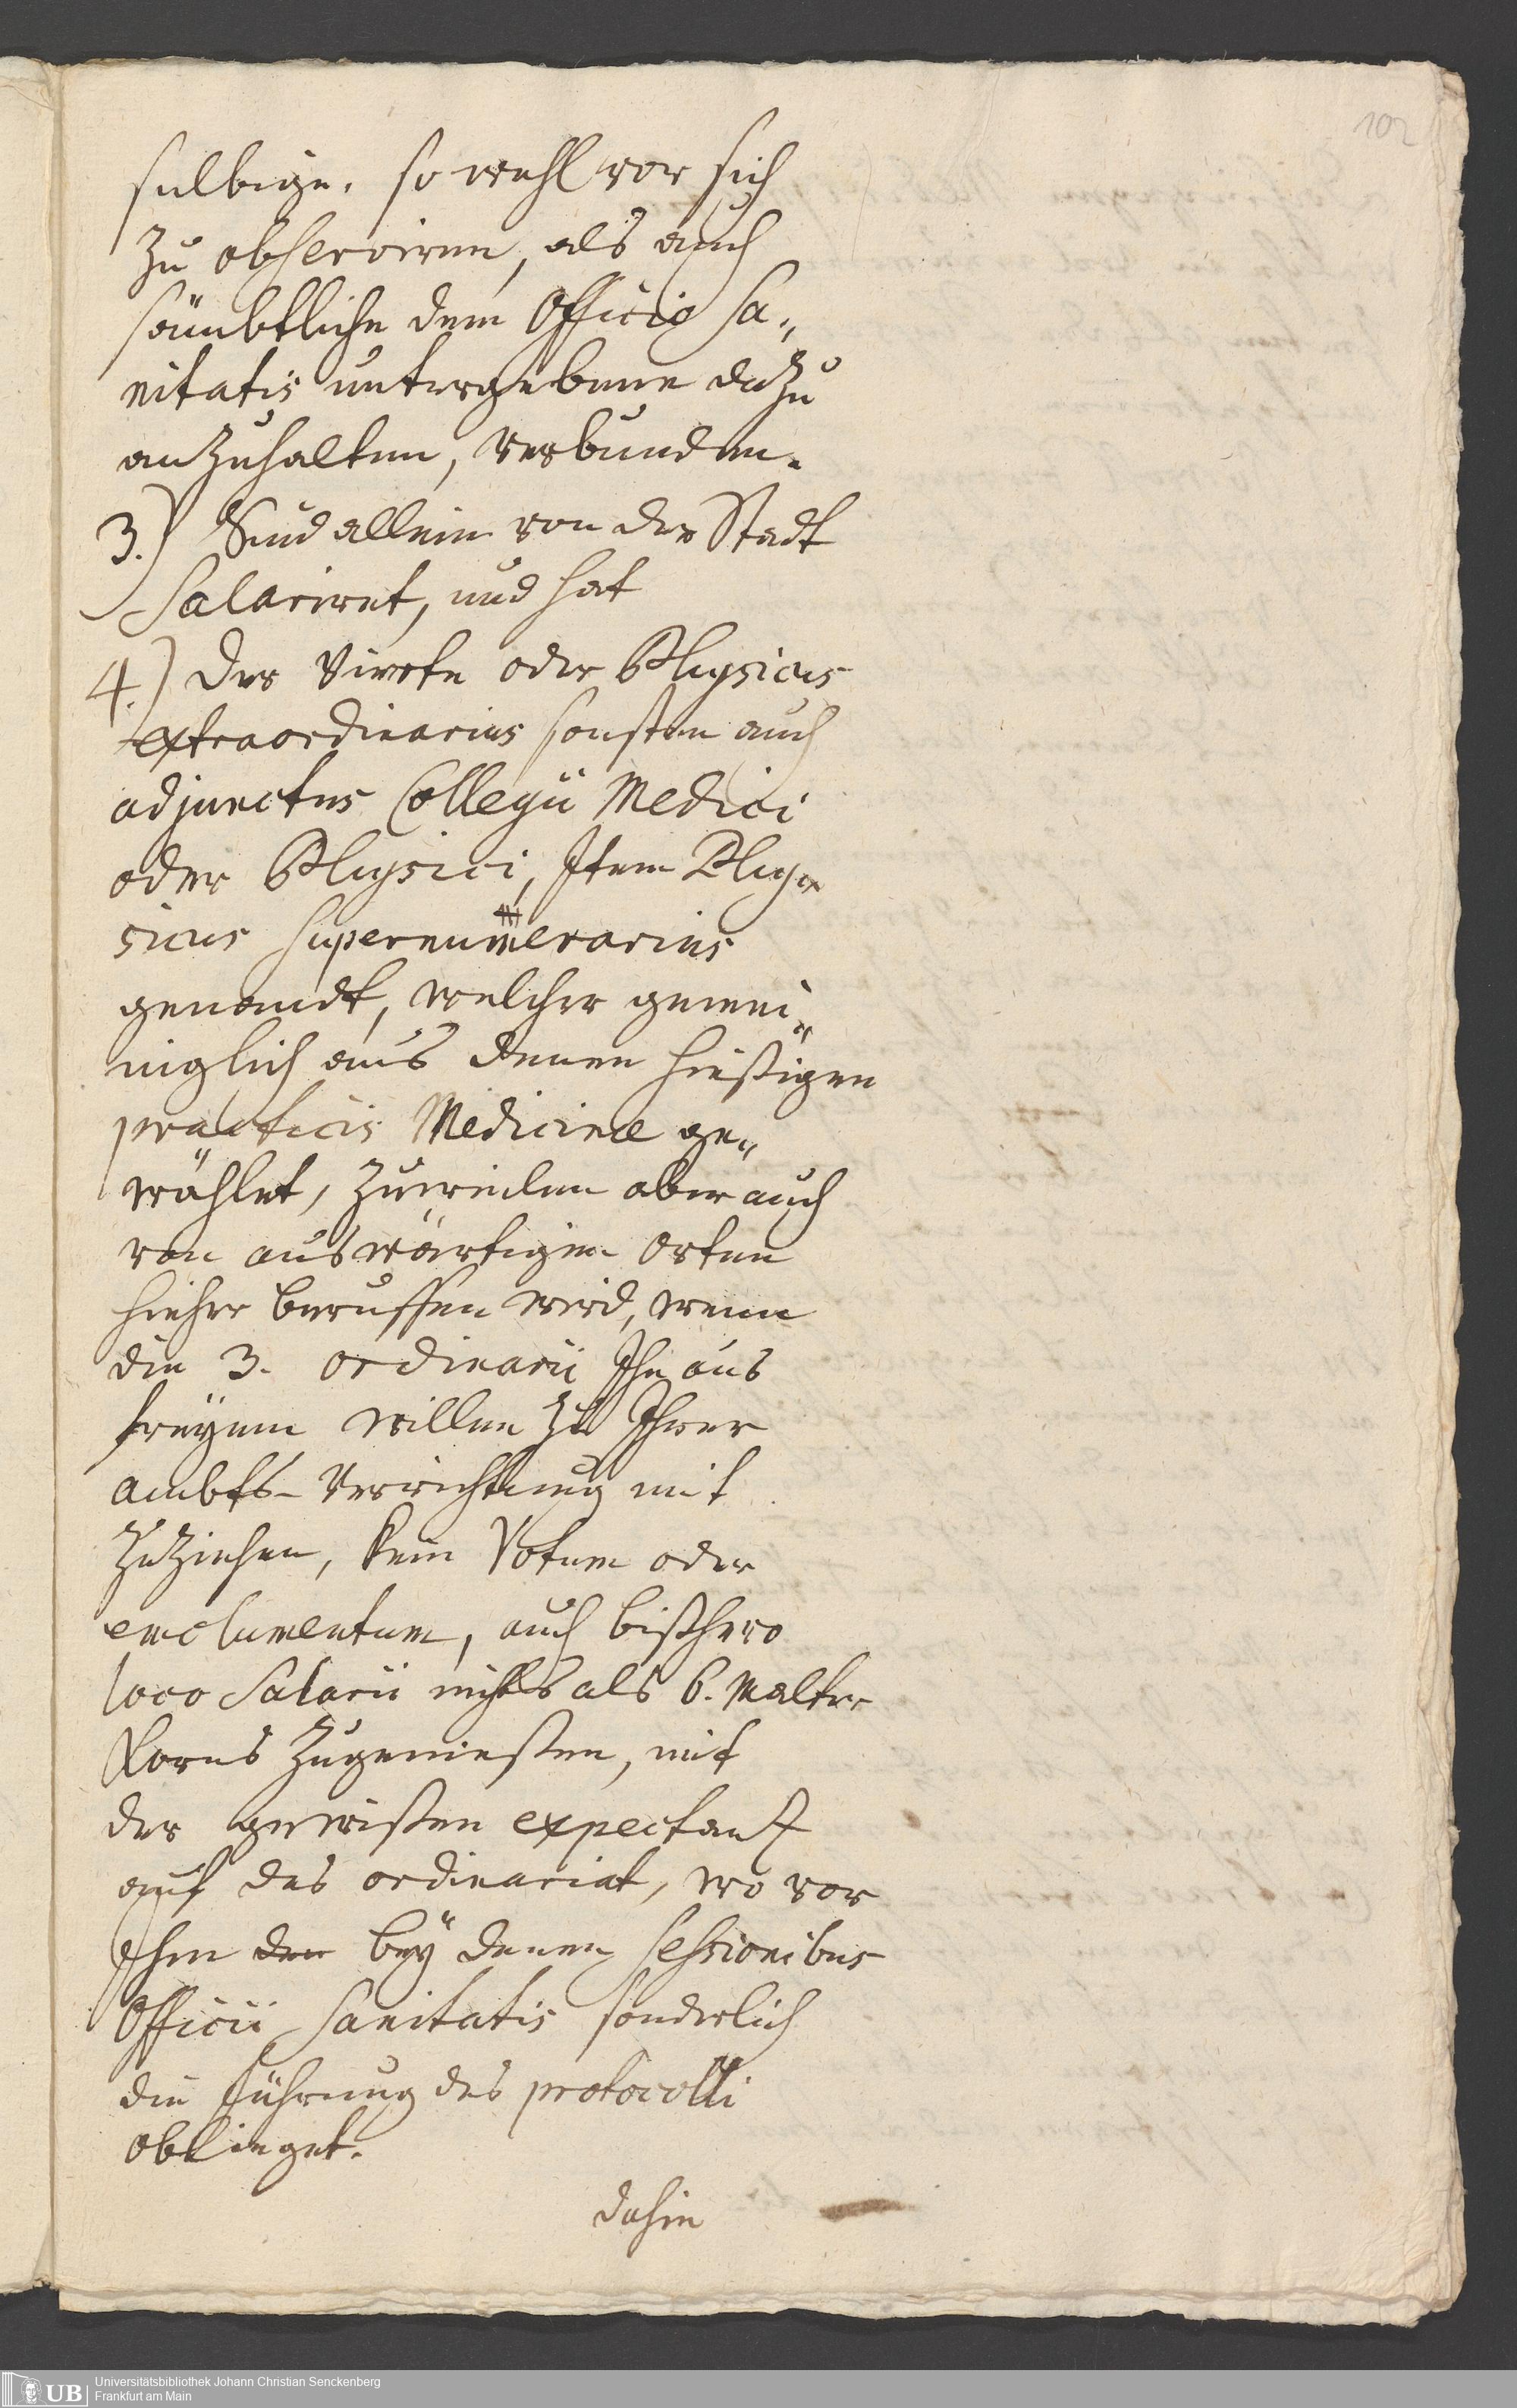 102
selbige, so wohl vor sich
zu observiren, als auch
sämbtliche dem Officio Sa„
nitatis untergebene dazu
anzuhalten, verbunden.
3.) Sind allein von der Stadt
Salariret, und hat
4.) der Vierte oder Physicus
extraordinarius sonsten auch
adjunctus Collegii Medici
oder Physici, Item Phy„
sicus Supernumerarius
genandt, welcher gemei„
niglich aus denen hießigen
practicis Medicinæ ge„
wählet, zuweilen aber auch
von auswärtigen Orten
hieher beruffen wird, wenn
die 3. ordinarii Ihn aus
freyem willen zu Ihrer
Ambts-Verrichtung mit
zuziehen, kein Votum oder
emolumentum, auch bißhero
loco Salarii nichts als 6. Malter
Korns zugenießen, mit
der gewißen expectanz
auf das ordinariat, wo vor
Ihm der bey denen Sessionibus
Officii Sanitatis sonderlich
die führung des protocolli
oblieget.
dahin
UB Universitätsbibliothek Johann Christian Senckenberg
Frankfurt am Main